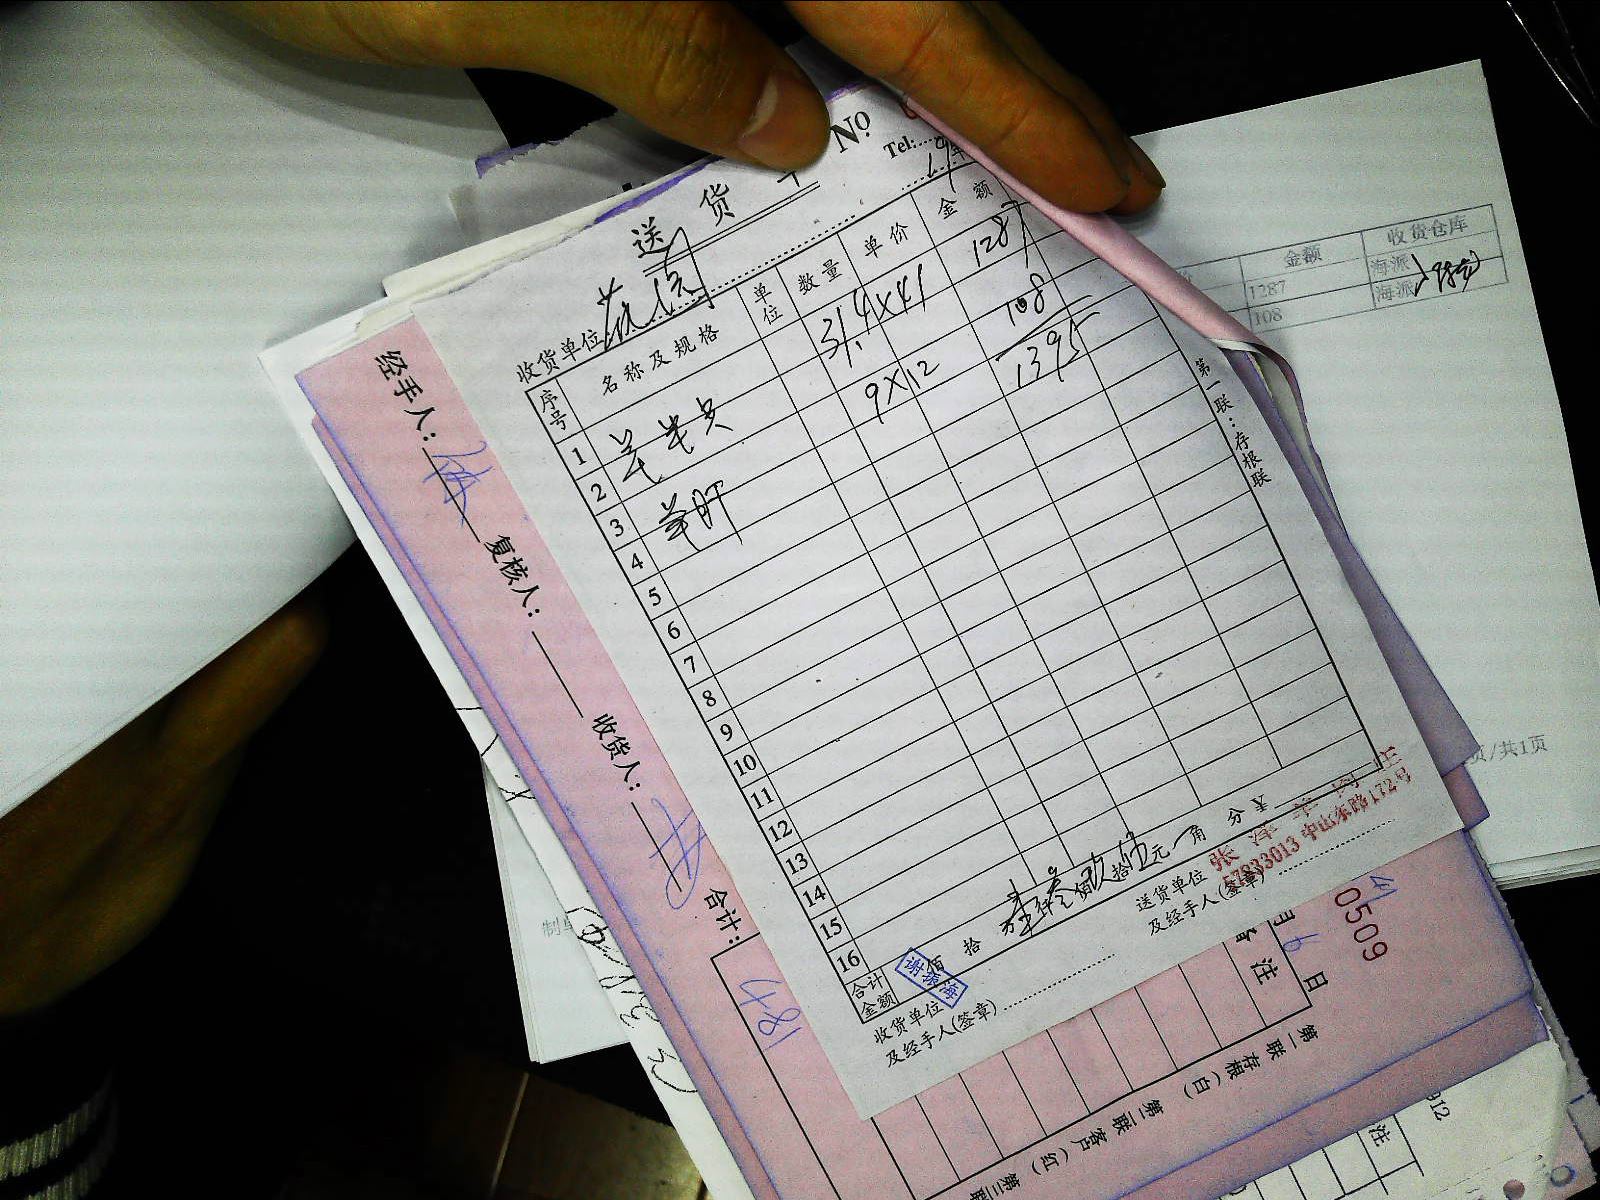 送 货 单
No
Tel:
年
收货单位
序号 名称及规格 单位 数量 单价 金额
1 31.4×41 1287
2 9×12 108
3 羊肝 1395
4
5
6
7
8
9
10
11
12
13
14
15
16
合计金额 佰 拾 壹仟叁佰玖拾伍元 角 分 ¥
谢振海
收货单位及经手人(签章)
送货单位及经手人(签章)
张泽羊肉庄
57833013 中山东路172号
第一联：存根联
经手人：
复核人：
收货人：
合计：
481
0509
月 6 日
备注
第一联 存根(白) 第二联 客户(红) 第三联
金额 收货仓库
1287 海派
108 海派
页/共1页
912
注